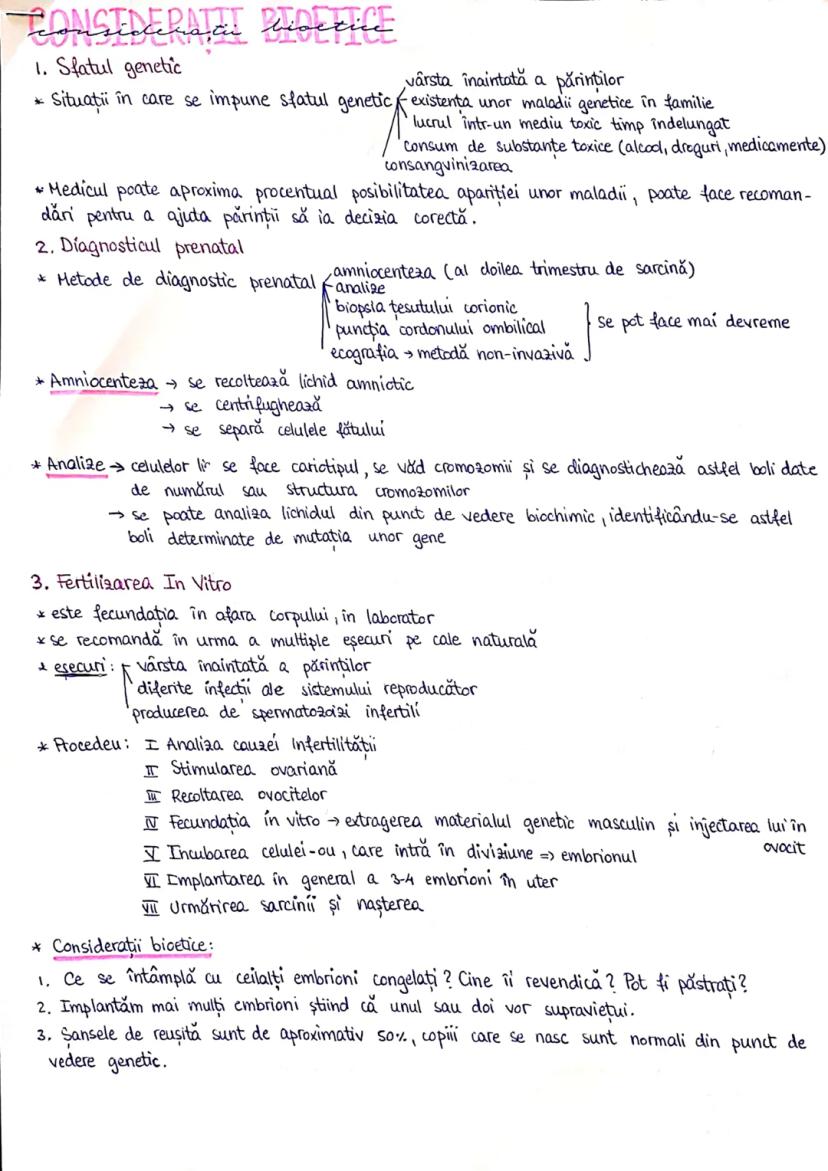 CONSIDERAȚII BIOETICE
considerații bioetice
1. Sfatul genetic
vârsta înaintată a părinților
* Situații în care se impune sfatul genetic existența unor maladii genetice în familie
lucrul într-un mediu toxic timp îndelungat
consum de substanțe toxice (alcool, droguri, medicamente)
consangvinizarea
* Medicul poate aproxima procentual posibilitatea apariției unor maladii, poate face recoman-
dări pentru a ajuta părinții să ia decizia corectă.
2. Diagnosticul prenatal
amniocenteza (al doilea trimestru de sarcină)
* Metode de diagnostic prenatal analize
biopsia țesutului corionic
puncția cordonului ombilical
se pot face mai devreme
ecografia → metodă non-invazivă
* Amniocenteza → se recoltează lichid amniotic
→ se centrifughează
→ se separă celulele fătului
* Analize → celulelor li se face cariotipul, se văd cromozomii și se diagnostichează astfel boli date
de numărul sau structura cromozomilor
→ se poate analiza lichidul din punct de vedere biochimic, identificându-se astfel
boli determinate de mutația unor gene
3. Fertilizarea In Vitro
* este fecundația în afara corpului, în laborator
* se recomandă în urma a multiple eșecuri pe cale naturală
* eșecuri: vârsta înaintată a părinților
diferite infecții ale sistemului reproducător
producerea de spermatozoizi infertili
* Procedeu: I Analiza cauzei infertilității
II Stimularea ovariană
III Recoltarea ovocitelor
IV Fecundația in vitro → extragerea materialul genetic masculin și injectarea lui în
ovocit
V Incubarea celulei-ou, care intră în diviziune => embrionul
VI Implantarea în general a 3-4 embrioni în uter
VII Urmărirea sarcinii și nașterea
* Considerații bioetice:
1. Ce se întâmplă cu ceilalți embrioni congelați? Cine îi revendică? Pot fi păstrați?
2. Implantăm mai mulți embrioni știind că unul sau doi vor supraviețui.
3. Șansele de reușită sunt de aproximativ 50%, copiii care se nasc sunt normali din punct de
vedere genetic.